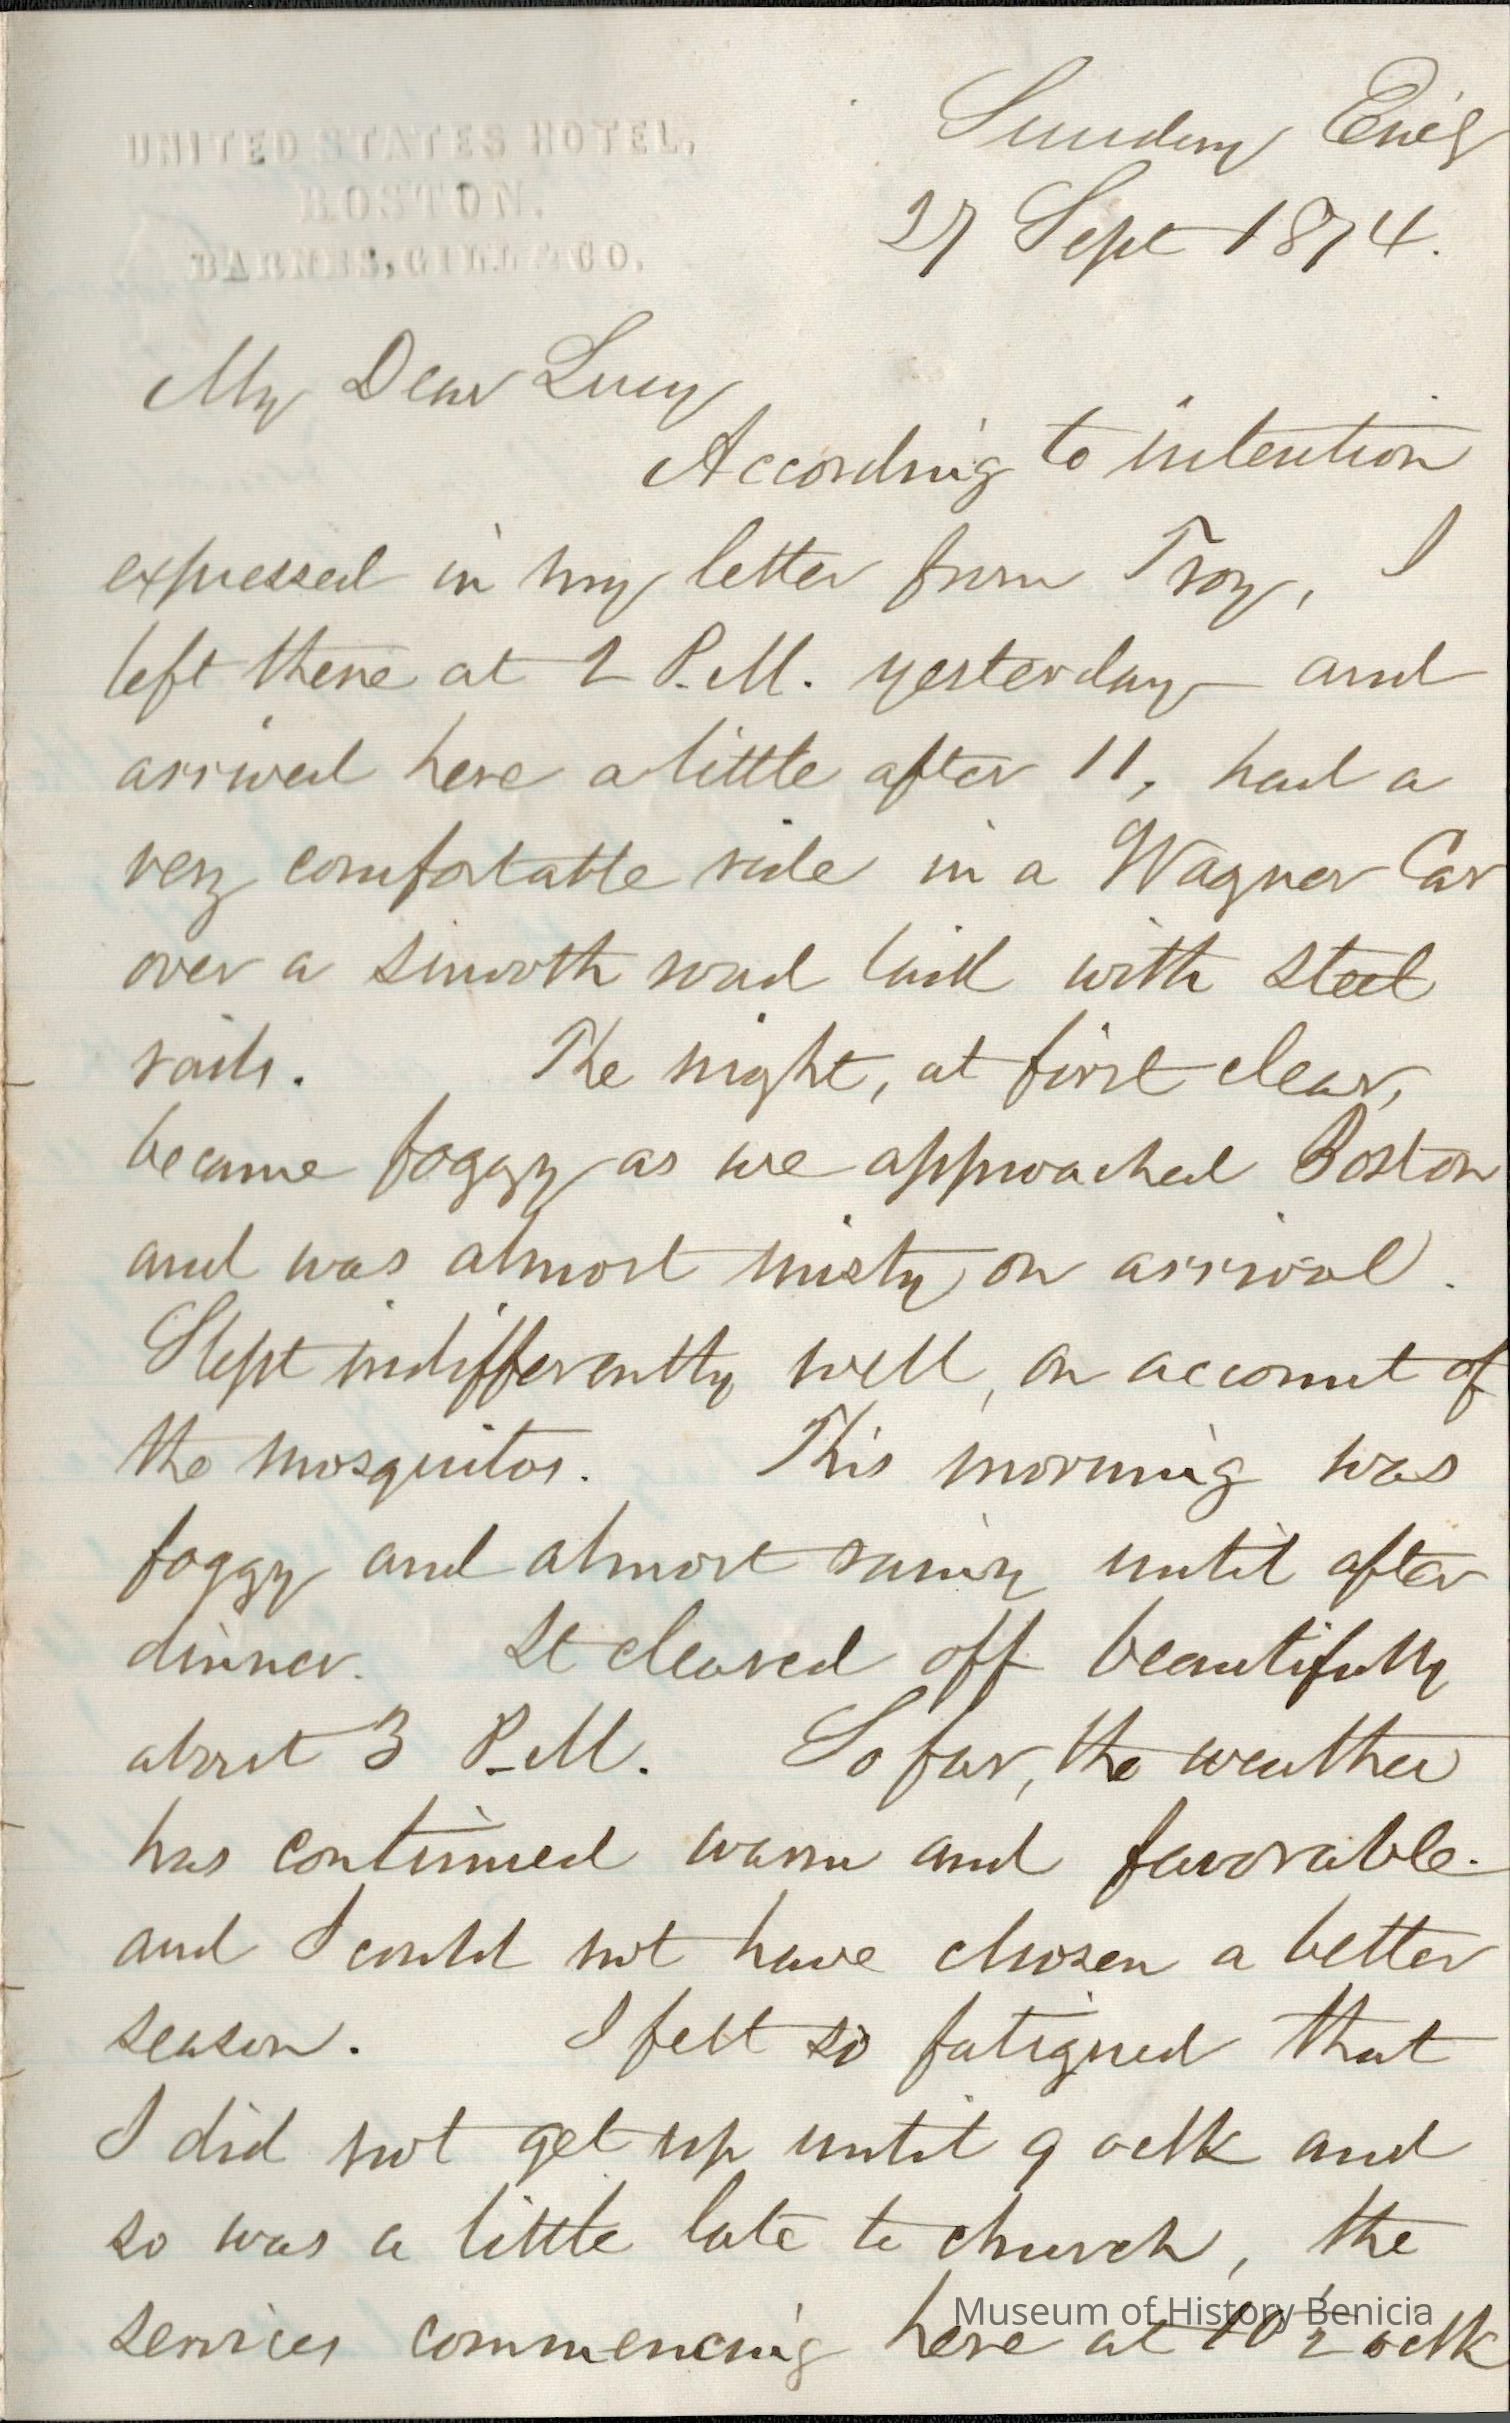 UNITED STATES HOTEL,
BOSTON.
BARNES, GILL & CO.
Sunday Eve'g
27 Sept 1874.
My Dear Lucy
According to intention
expressed in my letter from Troy, I
left there at 2 P.M. yesterday and
arrived here a little after 11, had a
very comfortable ride in a Wagner Car
over a smooth road laid with steel
rails. The night, at first clear,
became foggy as we approached Boston
and was almost misty on arrival.
Slept indifferently well, on account of
the mosquitos. This morning was
foggy and almost rainy until after
dinner. It cleared off beautifully
about 3 P.M. So far, the weather
has continued warm and favorable.
and I could not have chosen a better
season. I felt so fatigued that
I did not get up until 9 oclk and
so was a little late to church, the
services commencing here at 10½ oclk
Museum of History Benicia